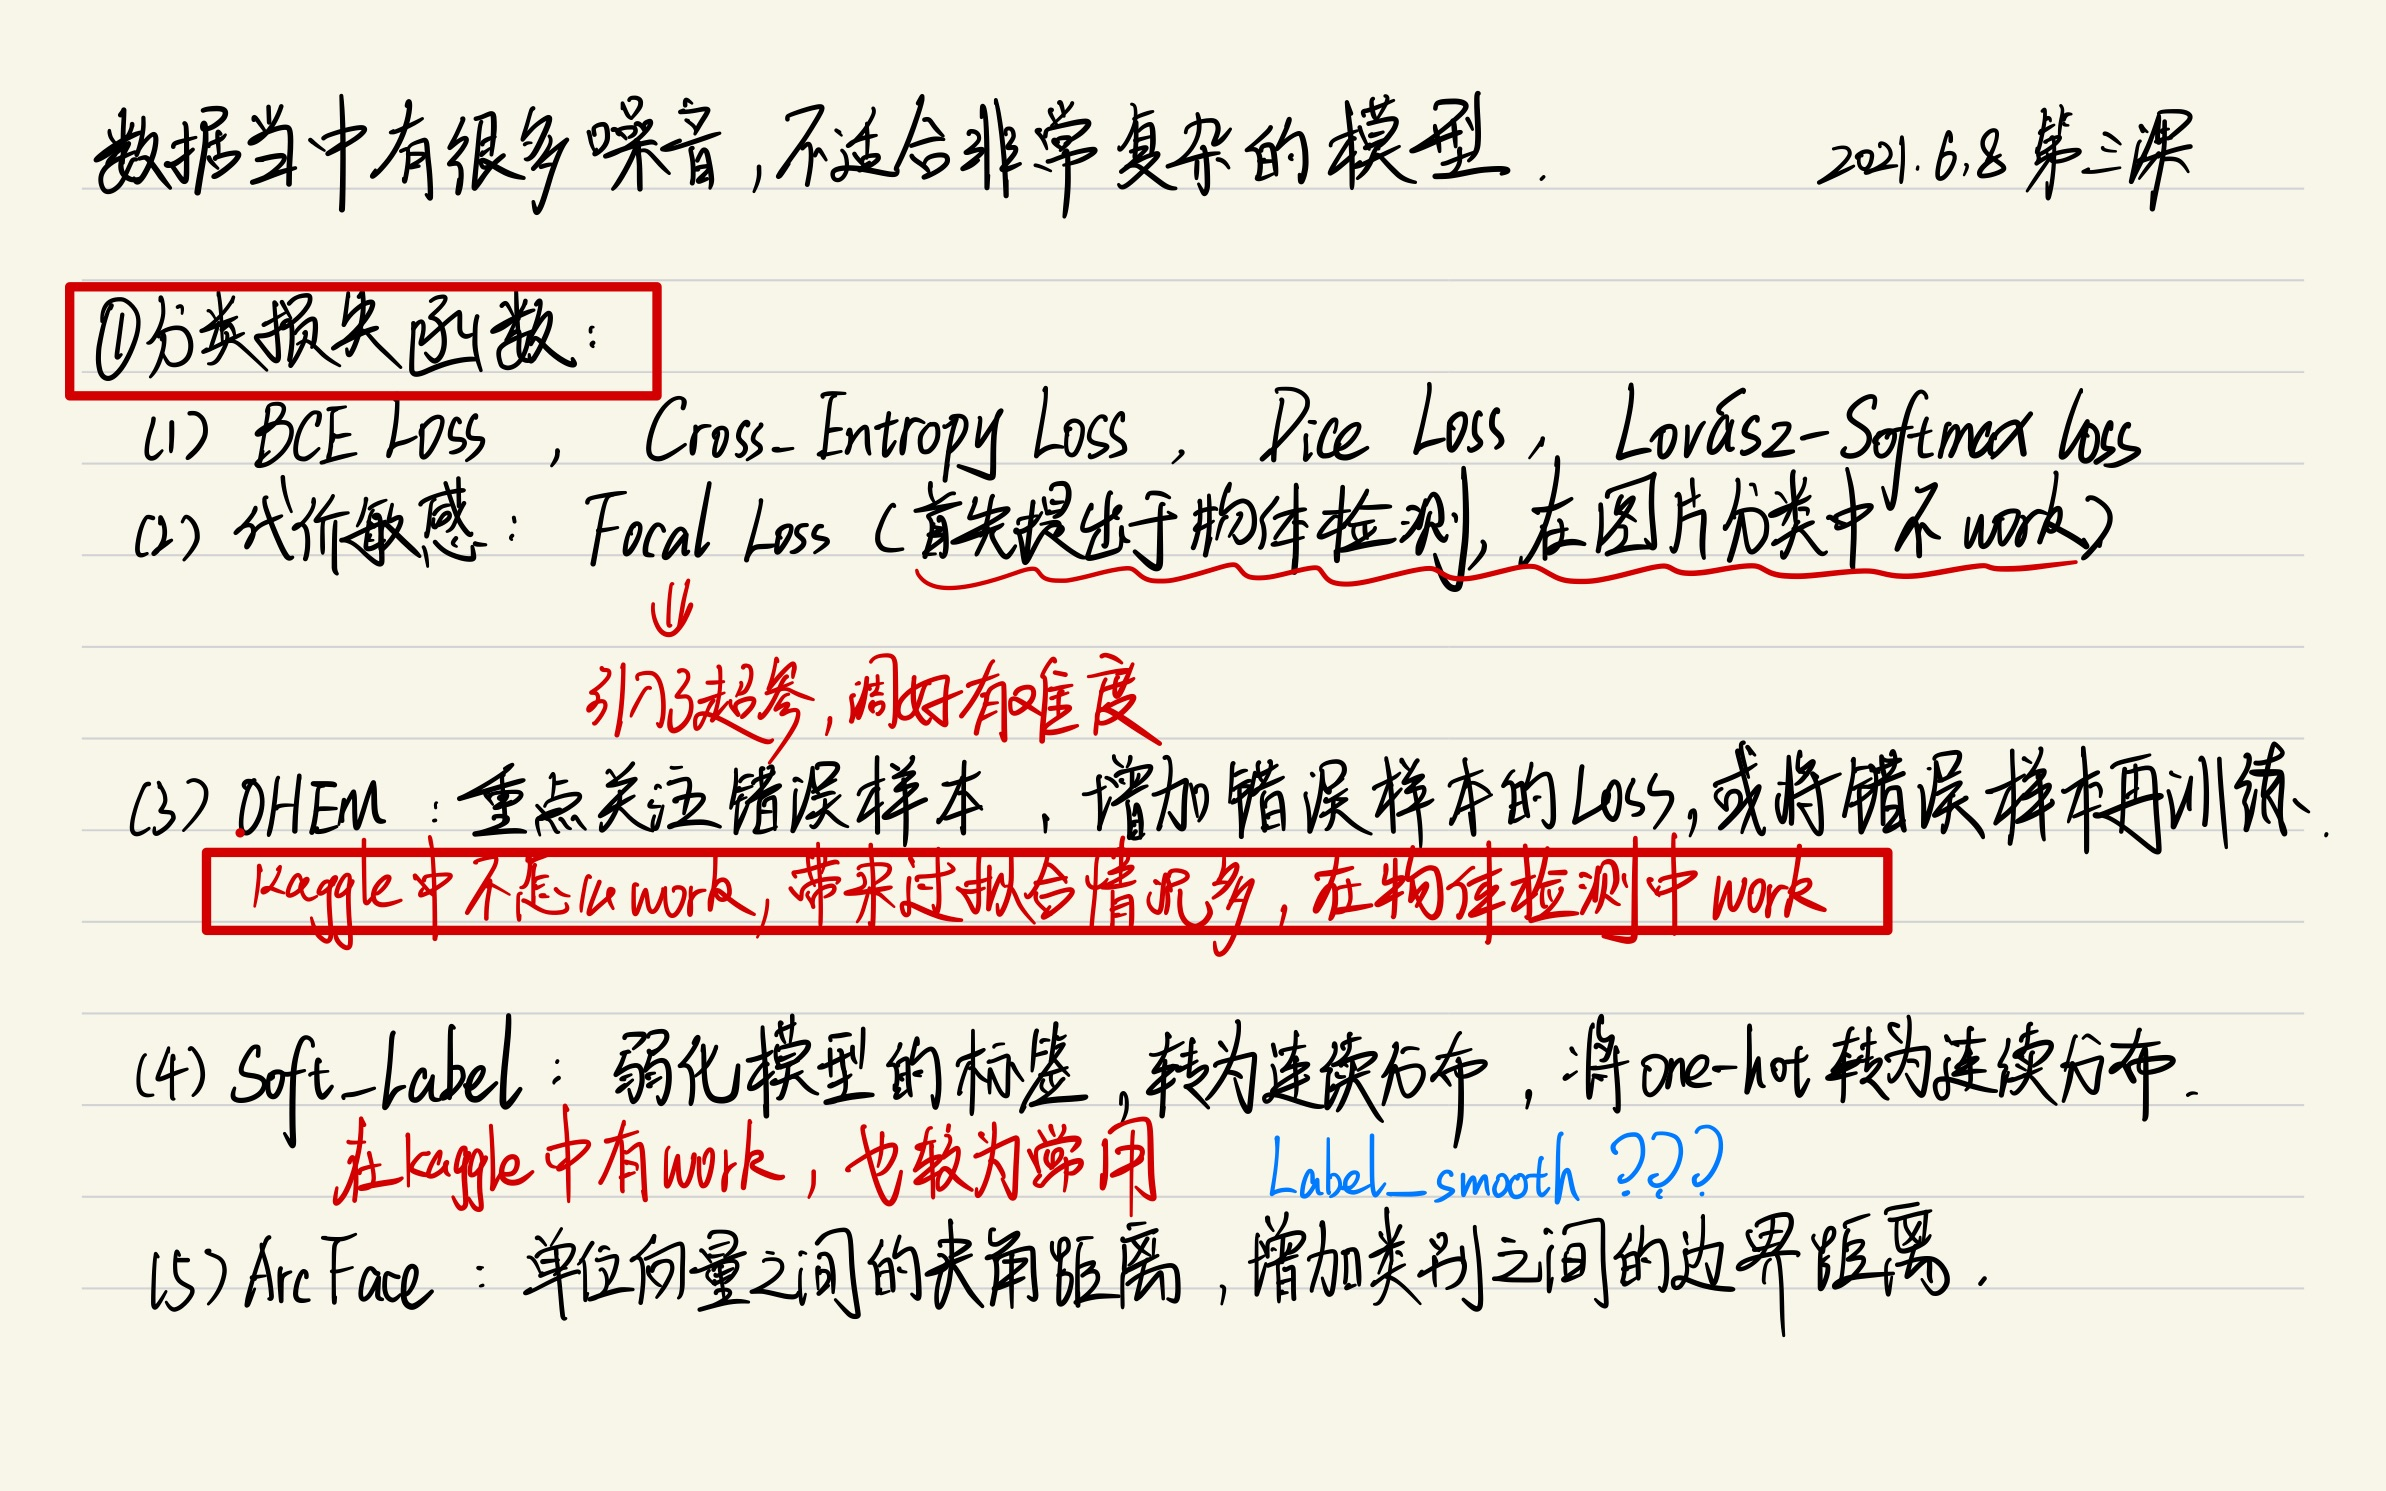 数据当中有很多噪音,不适合非常复杂的模型. 2021.6.8 第三课
①分类损失函数:
(1) BCE Loss , Cross_Entropy Loss , Dice Loss , Lovász-Softmax loss
(2) 代价敏感: Focal Loss (首先提出于物体检测, 在图片分类中不work)
引入了超参,调好有难度
(3) OHEM : 重点关注错误样本 , 增加错误样本的Loss,或将错误样本再训练.
Kaggle中不怎么work,带来过拟合情况多,在物体检测中work
(4) Soft_Label : 弱化模型的标签,转为连续分布,将one-hot转为连续分布.
在kaggle中有work,也较为常用 Label_smooth ???
(5) ArcFace : 单位向量之间的夹角距离,增加类别之间的边界距离.